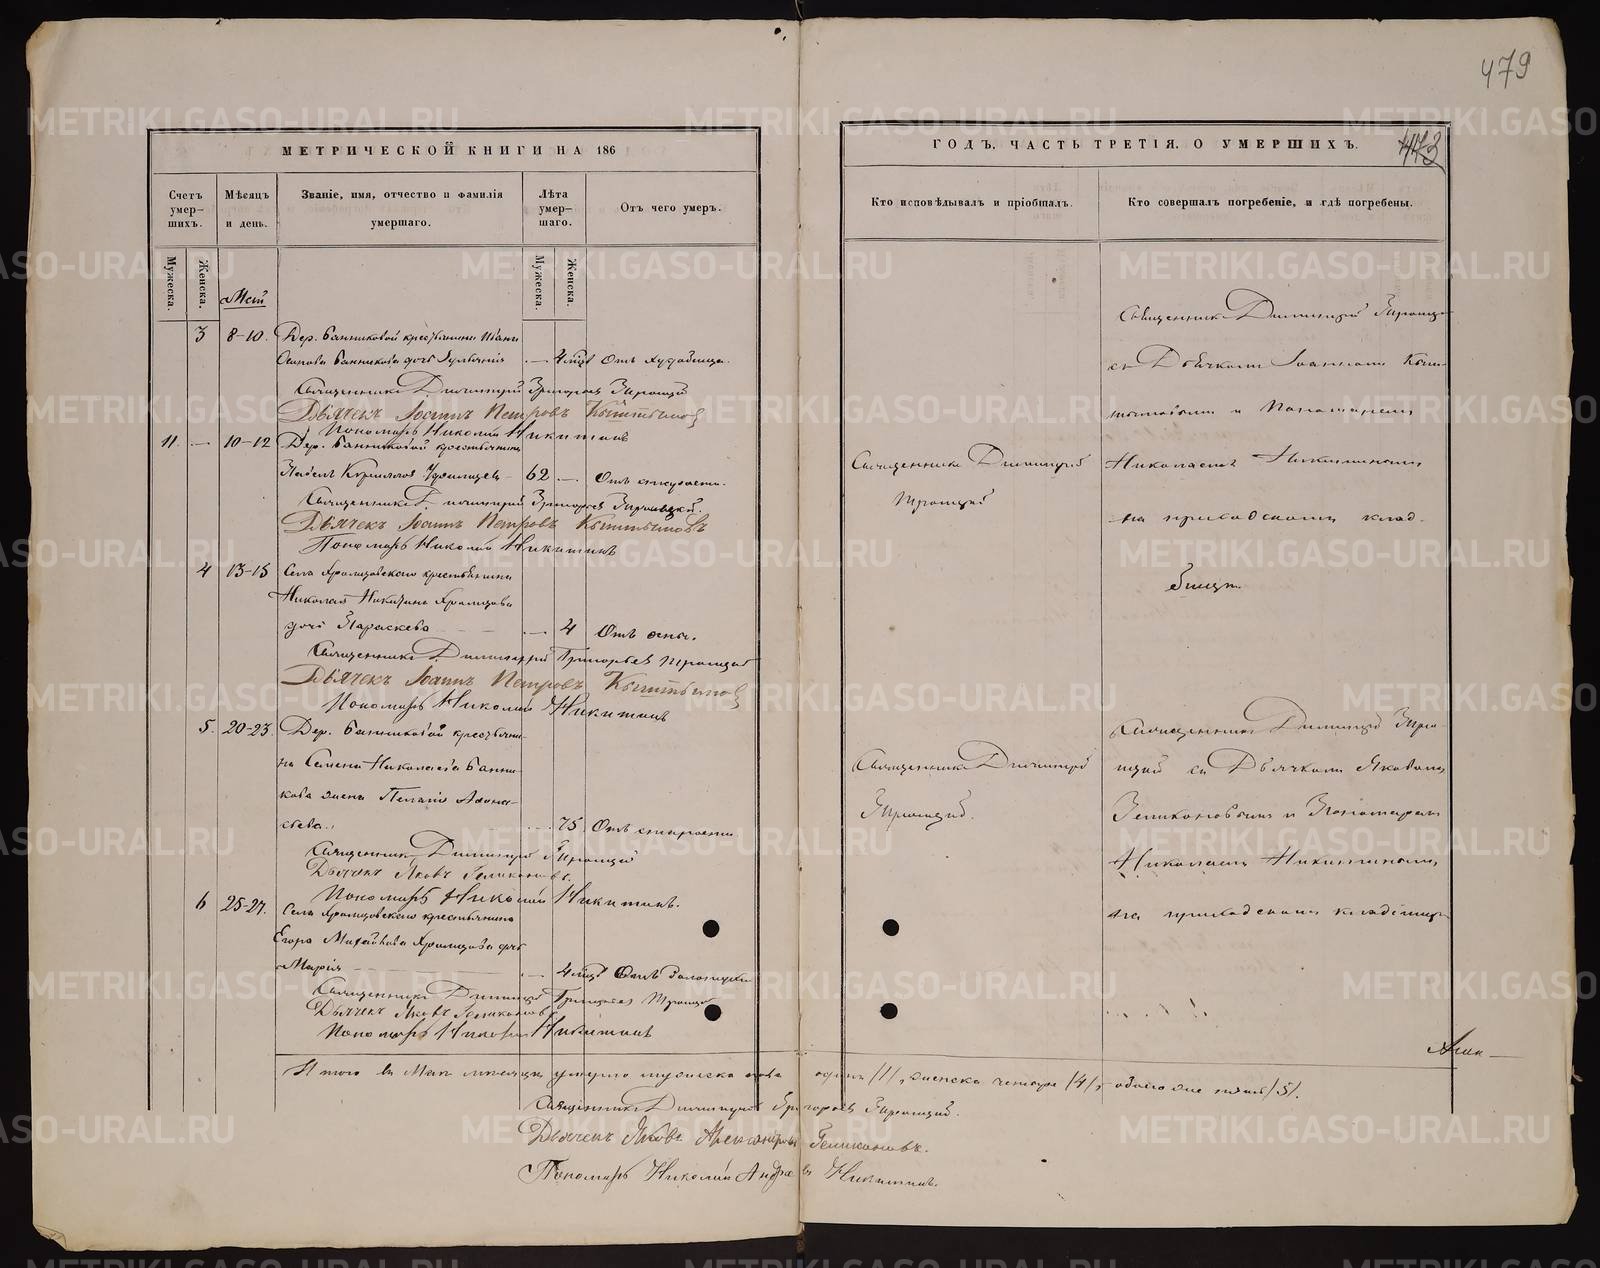 479
МЕТРИЧЕСКОЙ КНИГИ НА 186
ГОДЪ, ЧАСТЬ ТРЕТІЯ. О УМЕРШИХЪ.
473
Счетъ умер-шихъ.
Мѣсяцъ и день.
Званіе, имя, отчество и фамилія умершаго.
Лѣта умер-шаго.
Отъ чего умеръ.
Кто исповѣдывалъ и пріобщалъ.
Кто совершалъ погребеніе, и гдѣ погребены.
Мужеска.
Женска.
Мужеска.
Женска.
Май
3 8-10. Дер. Банниковой крестьянина Ивана
Банникова дочь — 4 мѣс.
Священникъ Димитрій Григорьевъ Троицкій
Дьячекъ Іоаннъ Петровъ Кыштымовъ
Пономарь Николай Никитинъ
11. — 10-12 Дер. Банниковой крестьянинъ
Павелъ Кирилловъ 62 — Отъ старости.
Священникъ Димитрій Григорьевъ Троицкій.
Дьячекъ Іоаннъ Петровъ Кыштымовъ
Пономарь Николай Никитинъ
4 13-15 Села Храмцовскаго крестьянина
Николая Никитина Храмцова
дочь Параскева — 4 Отъ оспы.
Священникъ Димитрій Григорьевъ Троицкій
Дьячекъ Іоаннъ Петровъ Кыштымовъ
Пономарь Николай Никитинъ
5. 20-23. Дер. Банниковой крестьяни-
на Семена Николаева Банни-
кова жена Пелагія Афона-
сьева. — 75 Отъ старости
Священникъ Димитрій Троицкій
Дьячекъ Яковъ Геликоновъ.
Пономарь Николай Никитинъ.
6 25-27. Села Храмцовскаго крестьянина
Егора Михайлова Храмцова дочь
Марія — 4 мѣс. Отъ
Священникъ Димитрій Григорьевъ Троицкій
Дьячекъ Яковъ Геликоновъ
Пономарь Николай Никитинъ
Священникъ Димитрій
Троицкій
Священникъ Димитрій
Троицкій.
Священникъ Димитрій Троицкій
съ Дьячкомъ Іоанномъ Кыш-
тымовымъ и Пономаремъ
Николаемъ Никитинымъ
на приходскомъ клад-
бищѣ.
Священникъ Димитрій Трои-
цкій съ Дьячкомъ Яковомъ
Геликоновымъ и Пономаремъ
Николаемъ Никитинымъ
на приходскомъ кладбищѣ
Итого въ Маѣ мѣсяцѣ умерло мужеска пола одинъ /1/, женска четыре /4/, обоего же пять /5/.
Священникъ Димитрій Григорьевъ Троицкій.
Дьячекъ Яковъ Александровъ Геликоновъ.
Пономарь Николай Андреевъ Никитинъ.
METRIKI.GASO-URAL.RU